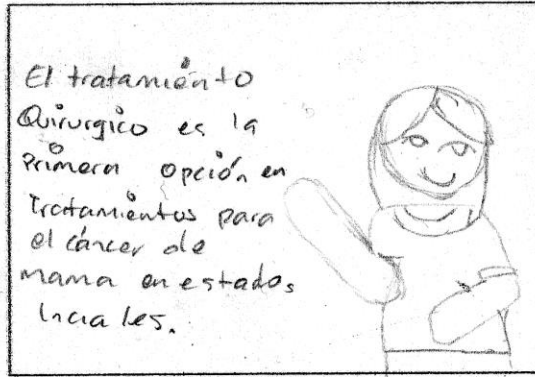 El tratamiento
Quirurgico es la
Primera opción en
Tratamientos para
el cáncer de
mama en estados
Inciales.